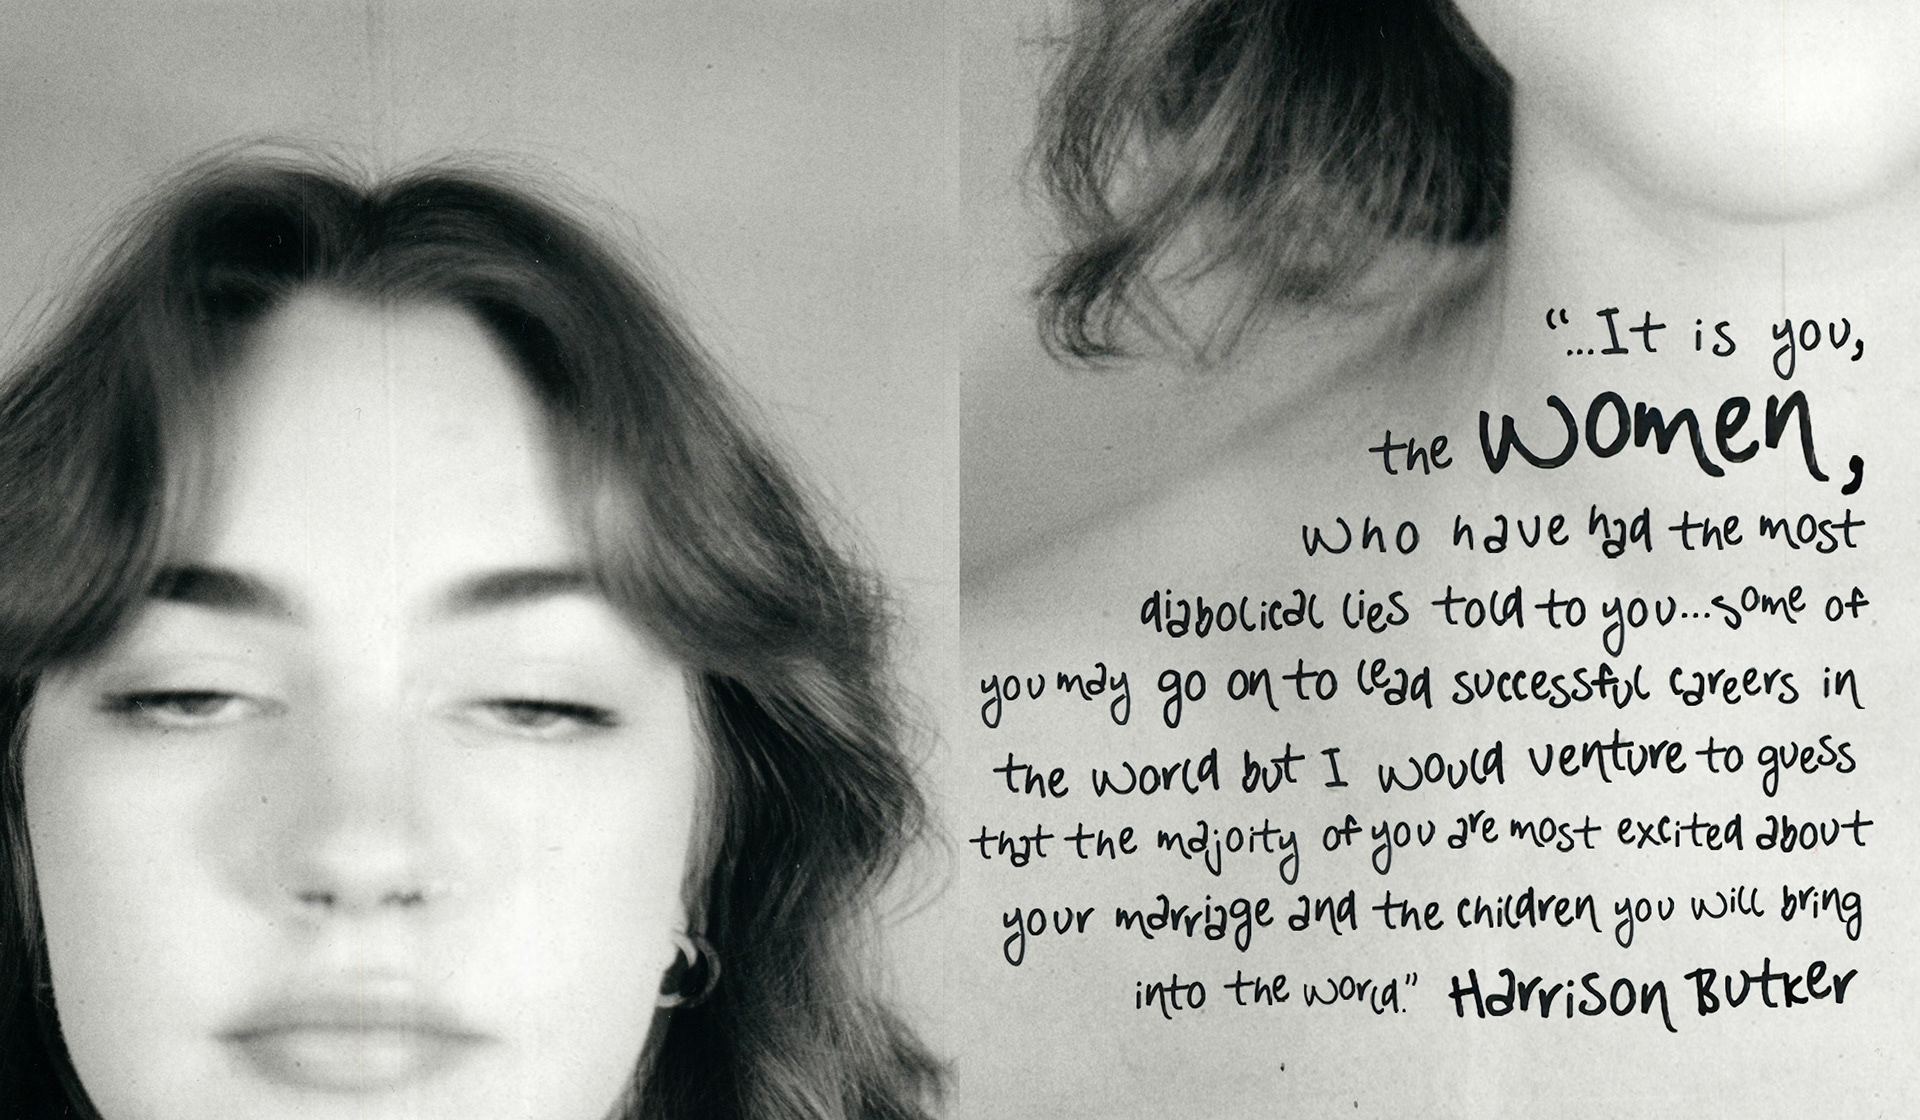 “...It is you,
the women,
who have had the most
diabolical lies told to you...some of
you may go on to lead successful careers in
the world but I would venture to guess
that the majority of you are most excited about
your marriage and the children you will bring
into the world.” Harrison Butker